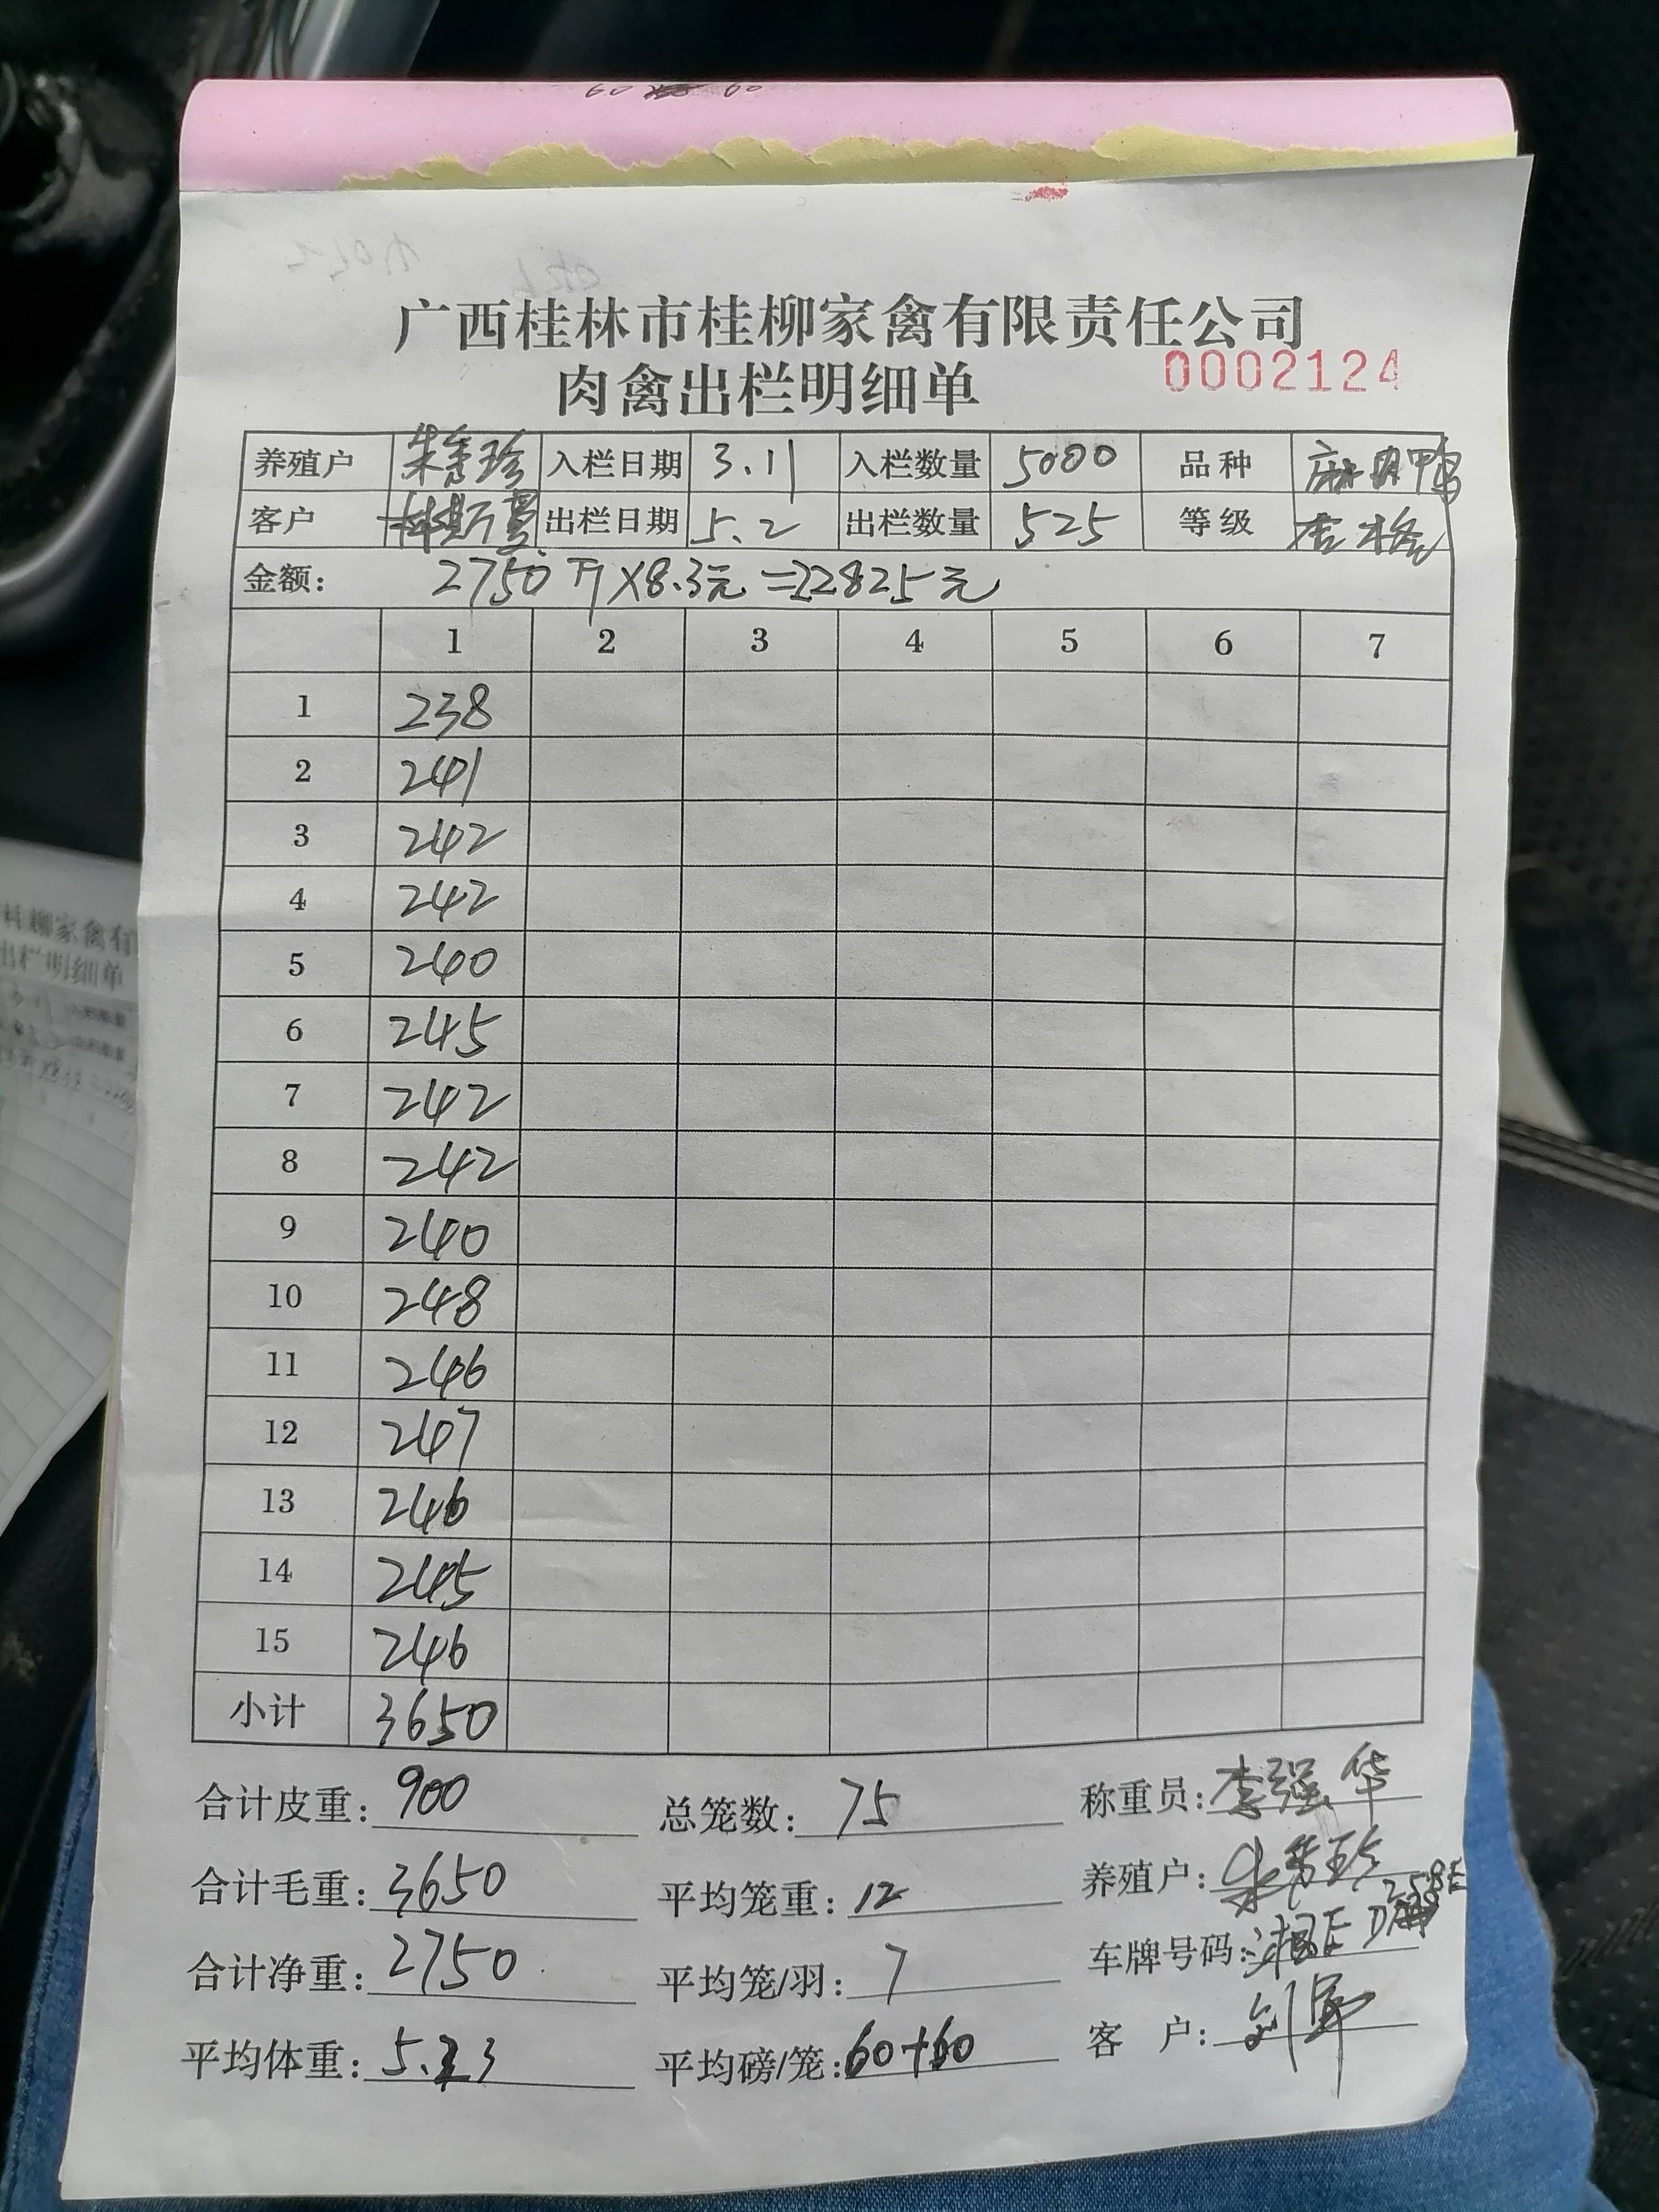 60 60
广西桂林市桂柳家禽有限责任公司
肉禽出栏明细单 0002124
养殖户 朱秀珍 入栏日期 3.11 入栏数量 5000 品种 麻鸭
客户 林斯曼 出栏日期 5.2 出栏数量 525 等级 杏格
金额: 2750斤×8.3元=22825元
1 2 3 4 5 6 7
1 238
2 241
3 242
4 242
5 240
6 245
7 242
8 242
9 240
10 248
11 246
12 247
13 246
14 245
15 246
小计 3650
合计皮重: 900 总笼数: 75 称重员: 李强华
合计毛重: 3650 平均笼重: 12 养殖户: 朱秀珍
合计净重: 2750 平均笼/羽: 7 车牌号码: 湘E D
平均体重: 5.23 平均磅/笼: 60+60 客 户: 刘军
柳家禽有
出栏明细单